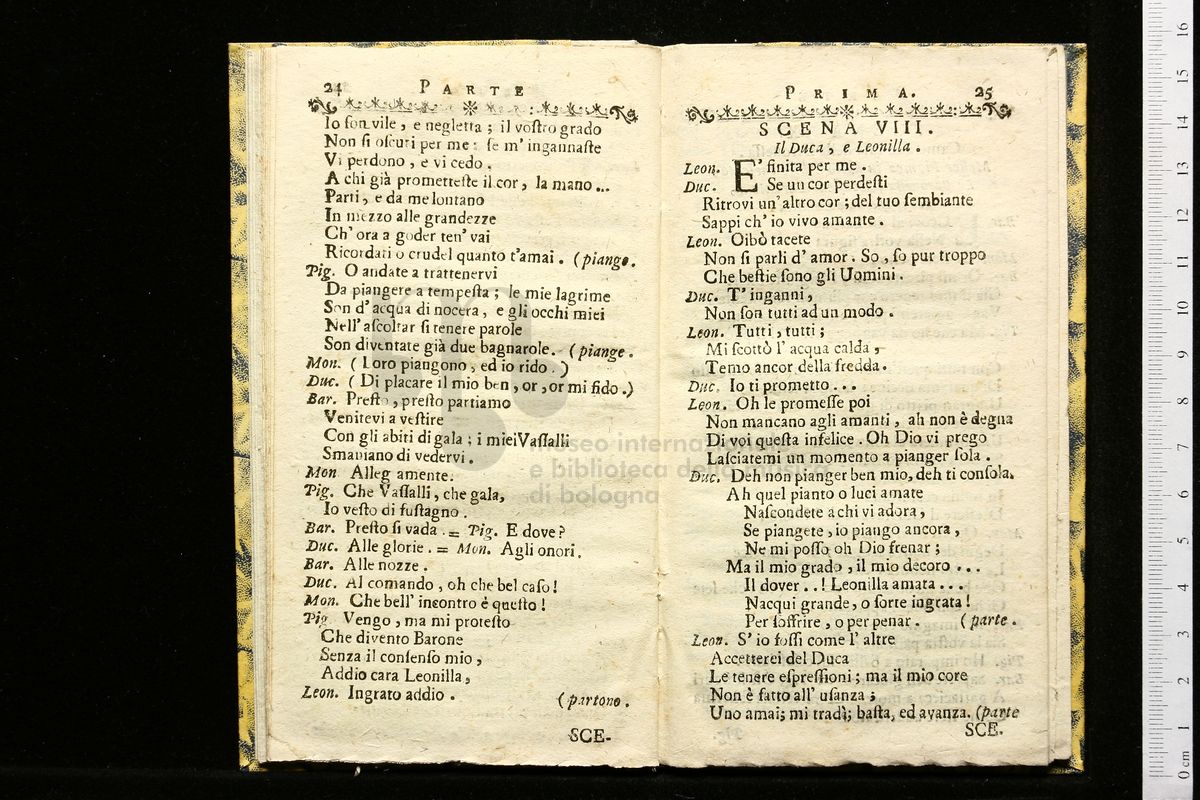 24 PARTE
Io ſon vile, e negletta; il voſtro grado
Non ſi oſcuri per me: ſe m' ingannaſte
Vi perdono, e vi cedo.
A chi già prometteſte il cor, la mano...
Parti, e da me lontano
In mezzo alle grandezze
Ch' ora a goder ten' vai
Ricordati o crudel quanto t'amai. (piange.
Pig. O andate a trattenervi
Da piangere a tempeſta; le mie lagrime
Son d'acqua di nocera, e gli occhi miei
Nell' aſcoltar ſi tenere parole
Son diventate già due bagnarole. (piange.
Mon. (Loro piangono, ed io rido.)
Duc. (Di placare il mio ben, or, or mi fido.)
Bar. Preſto, preſto partiamo
Venitevi a veſtire
Con gli abiti di gala; i miei Vaſſalli
Smaniano di vedervi.
Mon Allegramente.
Pig. Che Vaſſalli, che gala,
Io veſto di fuſtagno.
Bar. Preſto ſi vada. = Pig. E dove?
Duc. Alle glorie. = Mon. Agli onori.
Bar. Alle nozze.
Duc. Al comando, oh che bel caſo!
Mon. Che bell' incontro è queſto!
Pig Vengo, ma mi proteſto
Che divento Barone
Senza il conſenſo mio,
Addio cara Leonilla,
Leon. Ingrato addio. (partono.
SCE-
PRIMA. 25
SCENA VIII.
Il Duca, e Leonilla.
Leon. E' finita per me.
Duc. Se un cor perdeſti
Ritrovi un' altro cor; del tuo ſembiante
Sappi ch' io vivo amante.
Leon. Oibò tacete
Non ſi parli d' amor. So, ſo pur troppo
Che beſtie ſono gli Uomini.
Duc. T' inganni,
Non ſon tutti ad un modo.
Leon. Tutti, tutti;
Mi ſcottò l' acqua calda,
Temo ancor della fredda.
Duc. Io ti prometto...
Leon. Oh le promeſſe poi
Non mancano agli amanti, ah non è degna
Di voi queſta infelice. Oh Dio vi prego
Laſciatemi un momento a pianger ſola.
Duc. Deh non pianger ben mio, deh ti conſola.
Ah quel pianto o luci amate
Naſcondete a chi vi adora,
Se piangete, io piango ancora,
Ne mi poſſo oh Dio frenar;
Ma il mio grado, il mio decoro...
Il dover..! Leonilla amata...
Nacqui grande, o ſorte ingrata!
Per ſoffrire, o per penar. (parte.
Leon. S' io foſſi come l' altre
Accetterei del Duca
Le tenere eſpreſſioni; ma il mio core
Non è fatto all' uſanza;
Uno amai; mi tradì; baſta, ed avanza. (parte
SCE.
museo internazionale
e biblioteca della musica
di bologna
0 cm 1 2 3 4 5 6 7 8 9 10 11 12 13 14 15 16